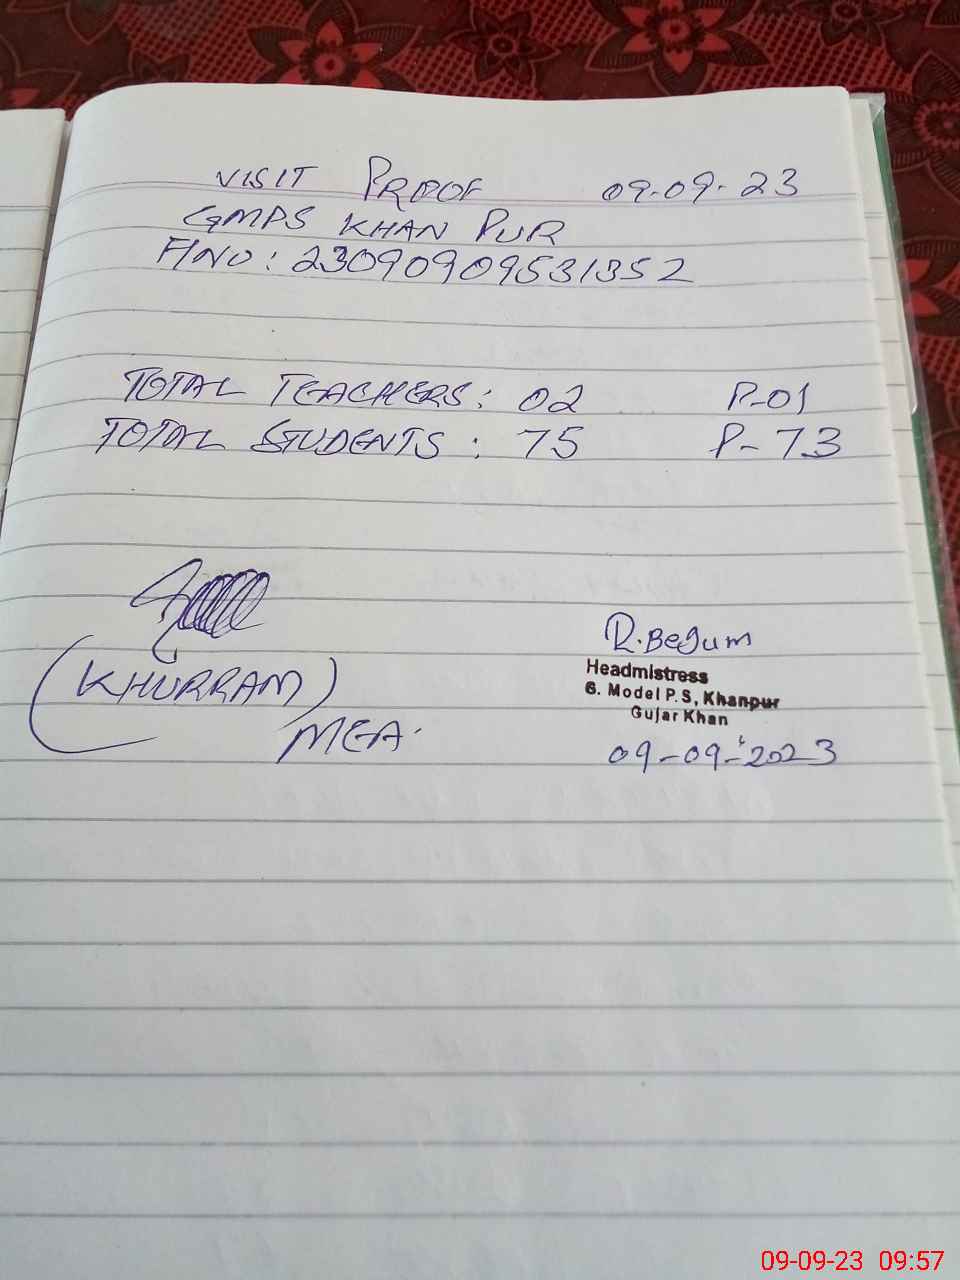 VISIT PROOF 09-09-23
GMPS KHAN PUR
F/NO: 23090909531352
TOTAL TEACHERS: 02 P-01
TOTAL STUDENTS: 75 P-73
(KHURRAM)
MEA.
R.Begum
Headmistress
G. Model P.S, Khanpur
Gujar Khan
09-09-2023
09-09-23 09:57